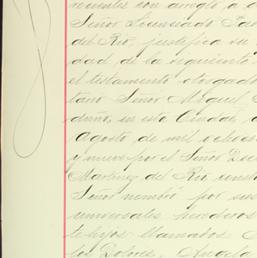 Señor Licenciado
del Rio, justifica su
dad de la siguiente
el testamento otorgado
tano Señor Miguel
duño, en esta Ciudad,
Agosto de mil ochoci
y nueve por el Señor
Martinez del Rio, const
Señor nombró por sus
universales herederos
te hijos llamados
los Dolores, Angela